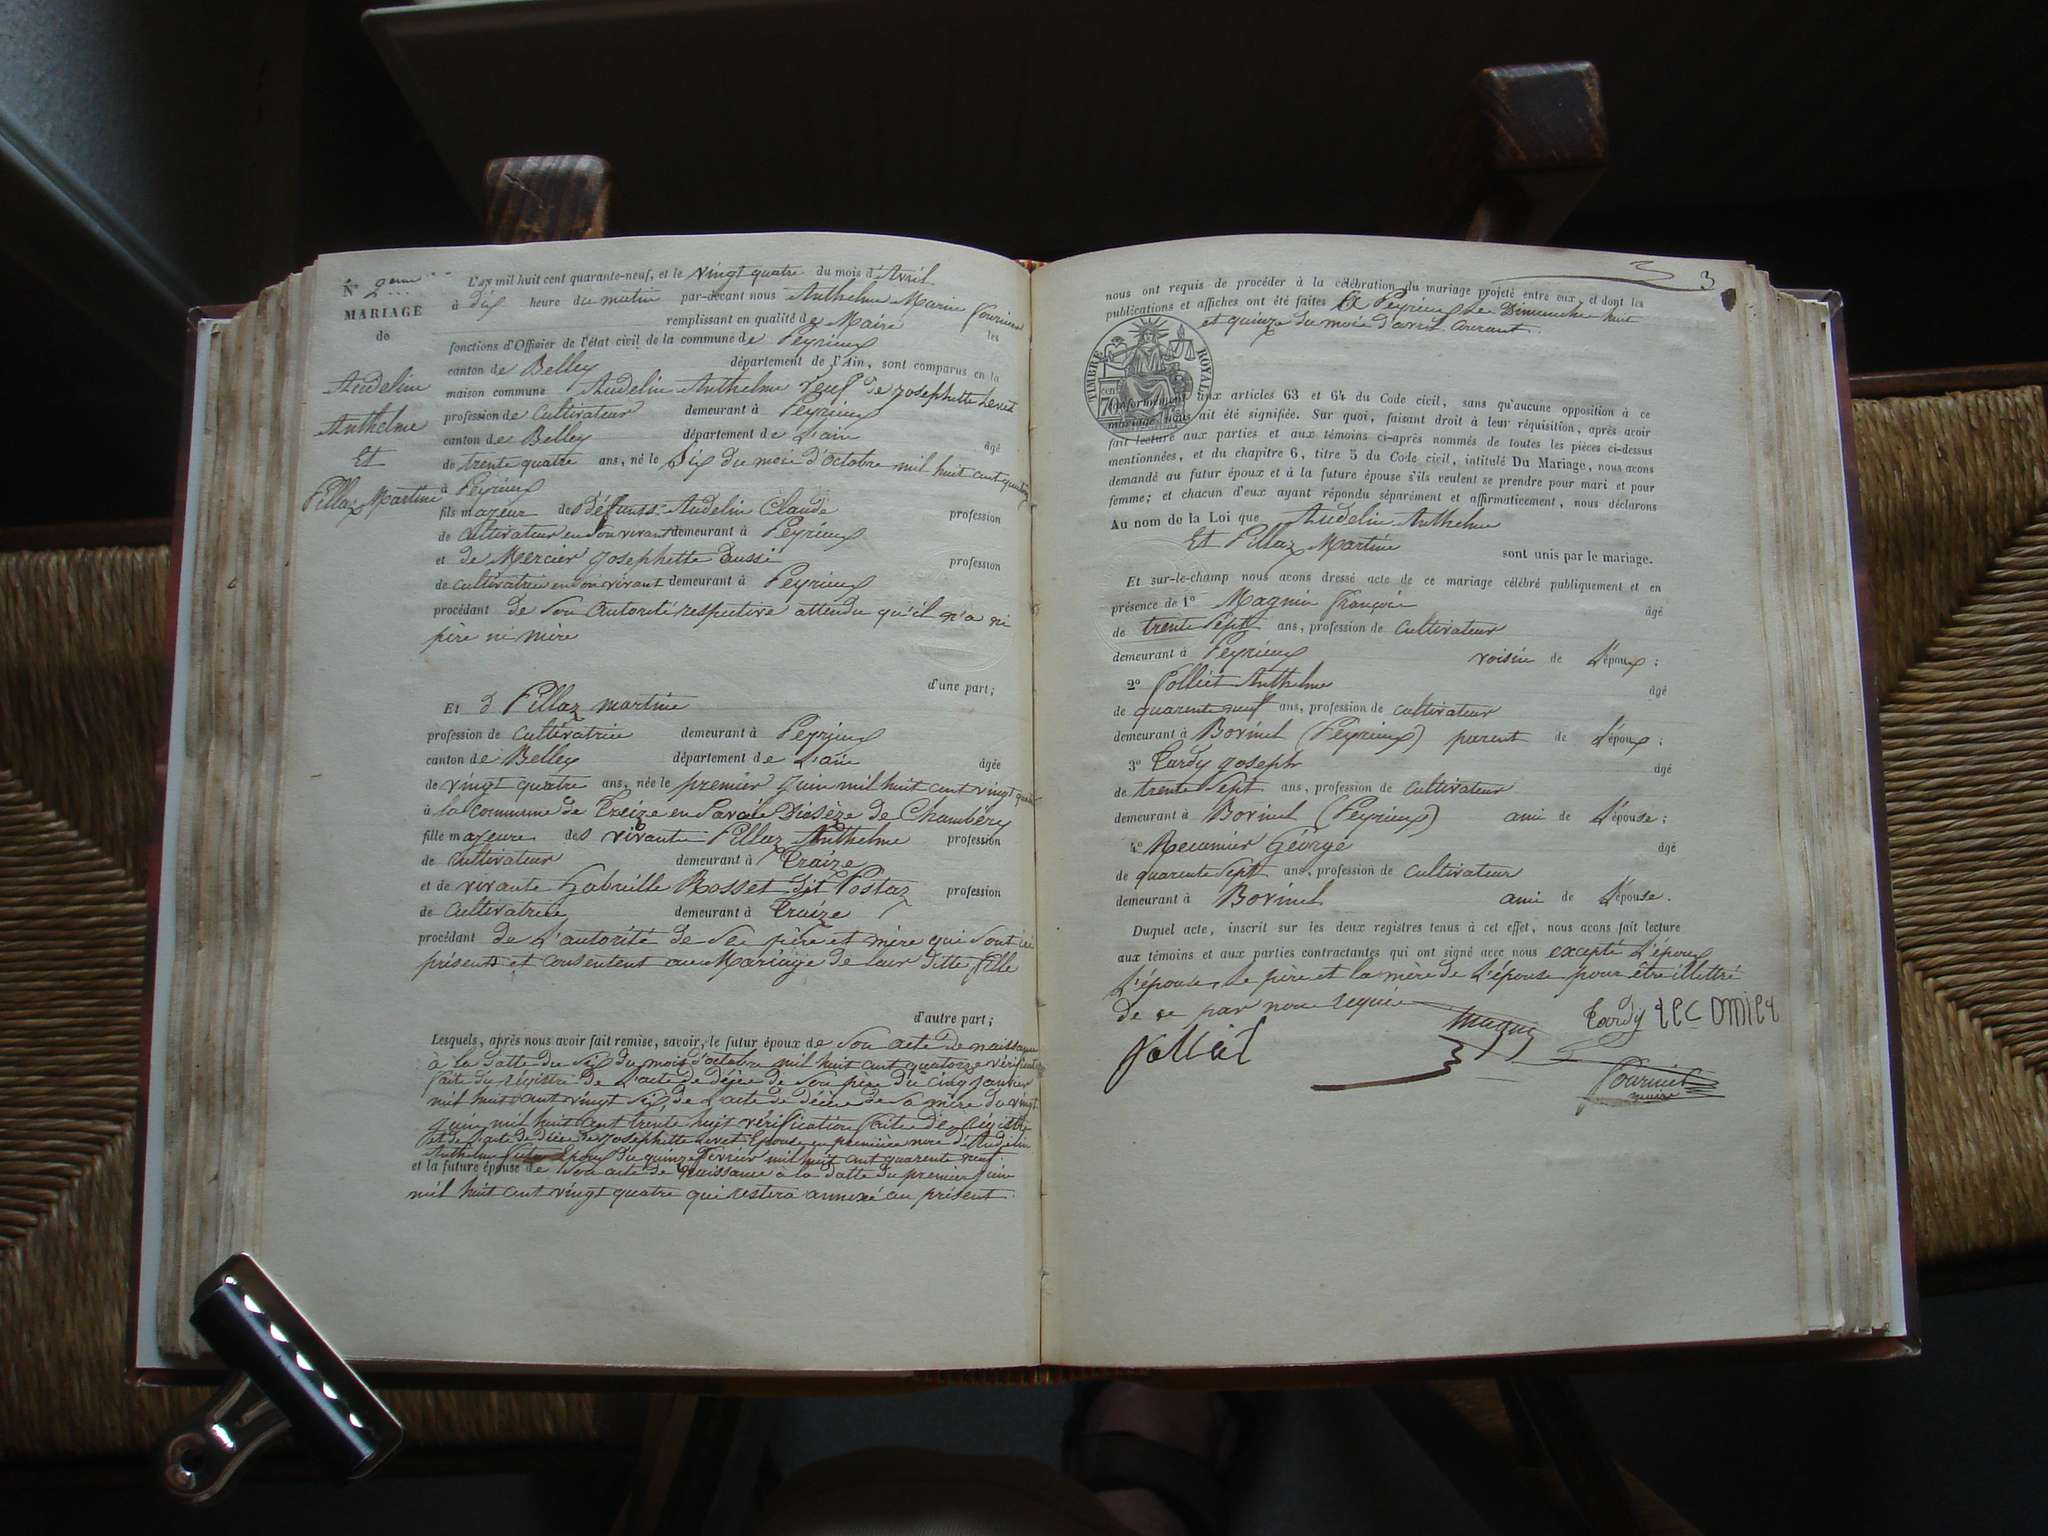 N° 2eme
MARIAGE
de
Audelin
Anthelme
Et
Pillaz Martine
L'an mil huit cent quarante-neuf, et le vingt quatre du mois d'Avril
à dix heure du matin par-devant nous Anthelme Marin fournier
remplissant en qualité de Maire les
fonctions d'Officier de l'état civil de la commune de Peyrieux
canton de Belley département de l'Ain, sont comparus en la
maison commune Audelin Anthelme veuf de Josephette
profession de Cultivateur demeurant à Peyrieux
canton de Belley département de L'ain âgé
de trente quatre ans, né le Six du mois d'octobre mil huit cent quatorze
à Peyrieux
fils majeur des défunts Audelin Claude profession
de Cultivateur en son vivant demeurant à Peyrieux
et de Mercier Josephette aussi profession
de cultivatrice en son vivant demeurant à Peyrieux
procédant de son autorité respective attendu qu'il n'a ni
père ni mère
d'une part;
Et d Pillaz martine
profession de cultivatrice demeurant à Peyrieux
canton de Belley département de L'ain âgée
de vingt quatre ans, née le premier Juin mil huit cent vingt quatre
à la commune de Traize en Savoie Diosèze de Chambéry
fille majeure des vivants Pillaz Anthelme profession
de Cultivateur demeurant à Traize
et de vivante Gabrielle Rosset dit Postaz profession
de Cultivatrice demeurant à Traize
procédant de L'autorité de Se père et mère qui sont ici
présents et consentent au Mariage de leur ditte fille
d'autre part;
Lesquels, après nous avoir fait remise, savoir, le futur époux de son acte de naissance
à la datte du six du mois d'octobre mil huit cent quatorze vérification
faite du régistre de L'acte de décès de son père du cinq Janvier
mil huit cent vingt six de L'acte de décès de sa mère du vingt
Juin mil huit cent trente huit vérification faite de régistre
et de L'acte de décès de Josephette Epouse en première noce d'Audelin
Anthelme futur Epoux du quinze février mil huit cent quarente neuf
et la future épouse de son acte de naissance à la datte du premier Juin
mil huit cent vingt quatre qui restera annexé au présent
3
nous ont requis de procéder à la célébration du mariage projeté entre eux, et dont les
publications et affiches ont été faites à Peyrieux le Dimanche huit
et quinze du mois d'avril courant.
TIMBRE ROYAL
70 cen
conformément aux articles 63 et 64 du Code civil, sans qu'aucune opposition à ce
mariage nous ait été signifiée. Sur quoi, faisant droit à leur réquisition, après avoir
fait lecture aux parties et aux témoins ci-après nommés de toutes les pièces ci-dessus
mentionnées, et du chapitre 6, titre 5 du Code civil, intitulé Du Mariage, nous avons
demandé au futur époux et à la future épouse s'ils veulent se prendre pour mari et pour
femme; et chacun d'eux ayant répondu séparément et affirmativement, nous déclarons
Au nom de la Loi que Audelin Anthelme
Et Pillaz Martine sont unis par le mariage.
Et sur-le-champ nous avons dressé acte de ce mariage célébré publiquement et en
présence de 1° Magnin françois âgé
de trente Sept ans, profession de Cultivateur
demeurant à Peyrieux voisin de L'époux;
2° Jolliet Anthelme âgé
de quarent neuf ans, profession de cultivateur
demeurant à Borinel (Peyrieux) parent de L'époux;
3° Tardy Joseph âgé
de trente Sept ans, profession de cultivateur
demeurant à Borinel (Peyrieux) ami de L'épouse;
4° Récamier Géorge âgé
de quarente Sept ans, profession de Cultivateur
demeurant à Borinel ami de L'épouse.
Duquel acte, inscrit sur les deux registres tenus à cet effet, nous avons fait lecture
aux témoins et aux parties contractantes qui ont signé avec nous excepté L'époux
L'épouse, le père et la mère de L'épouse pour être illettré
de ce par nous requis
Jolliet Magnin Tardy recamier
fournier
maire